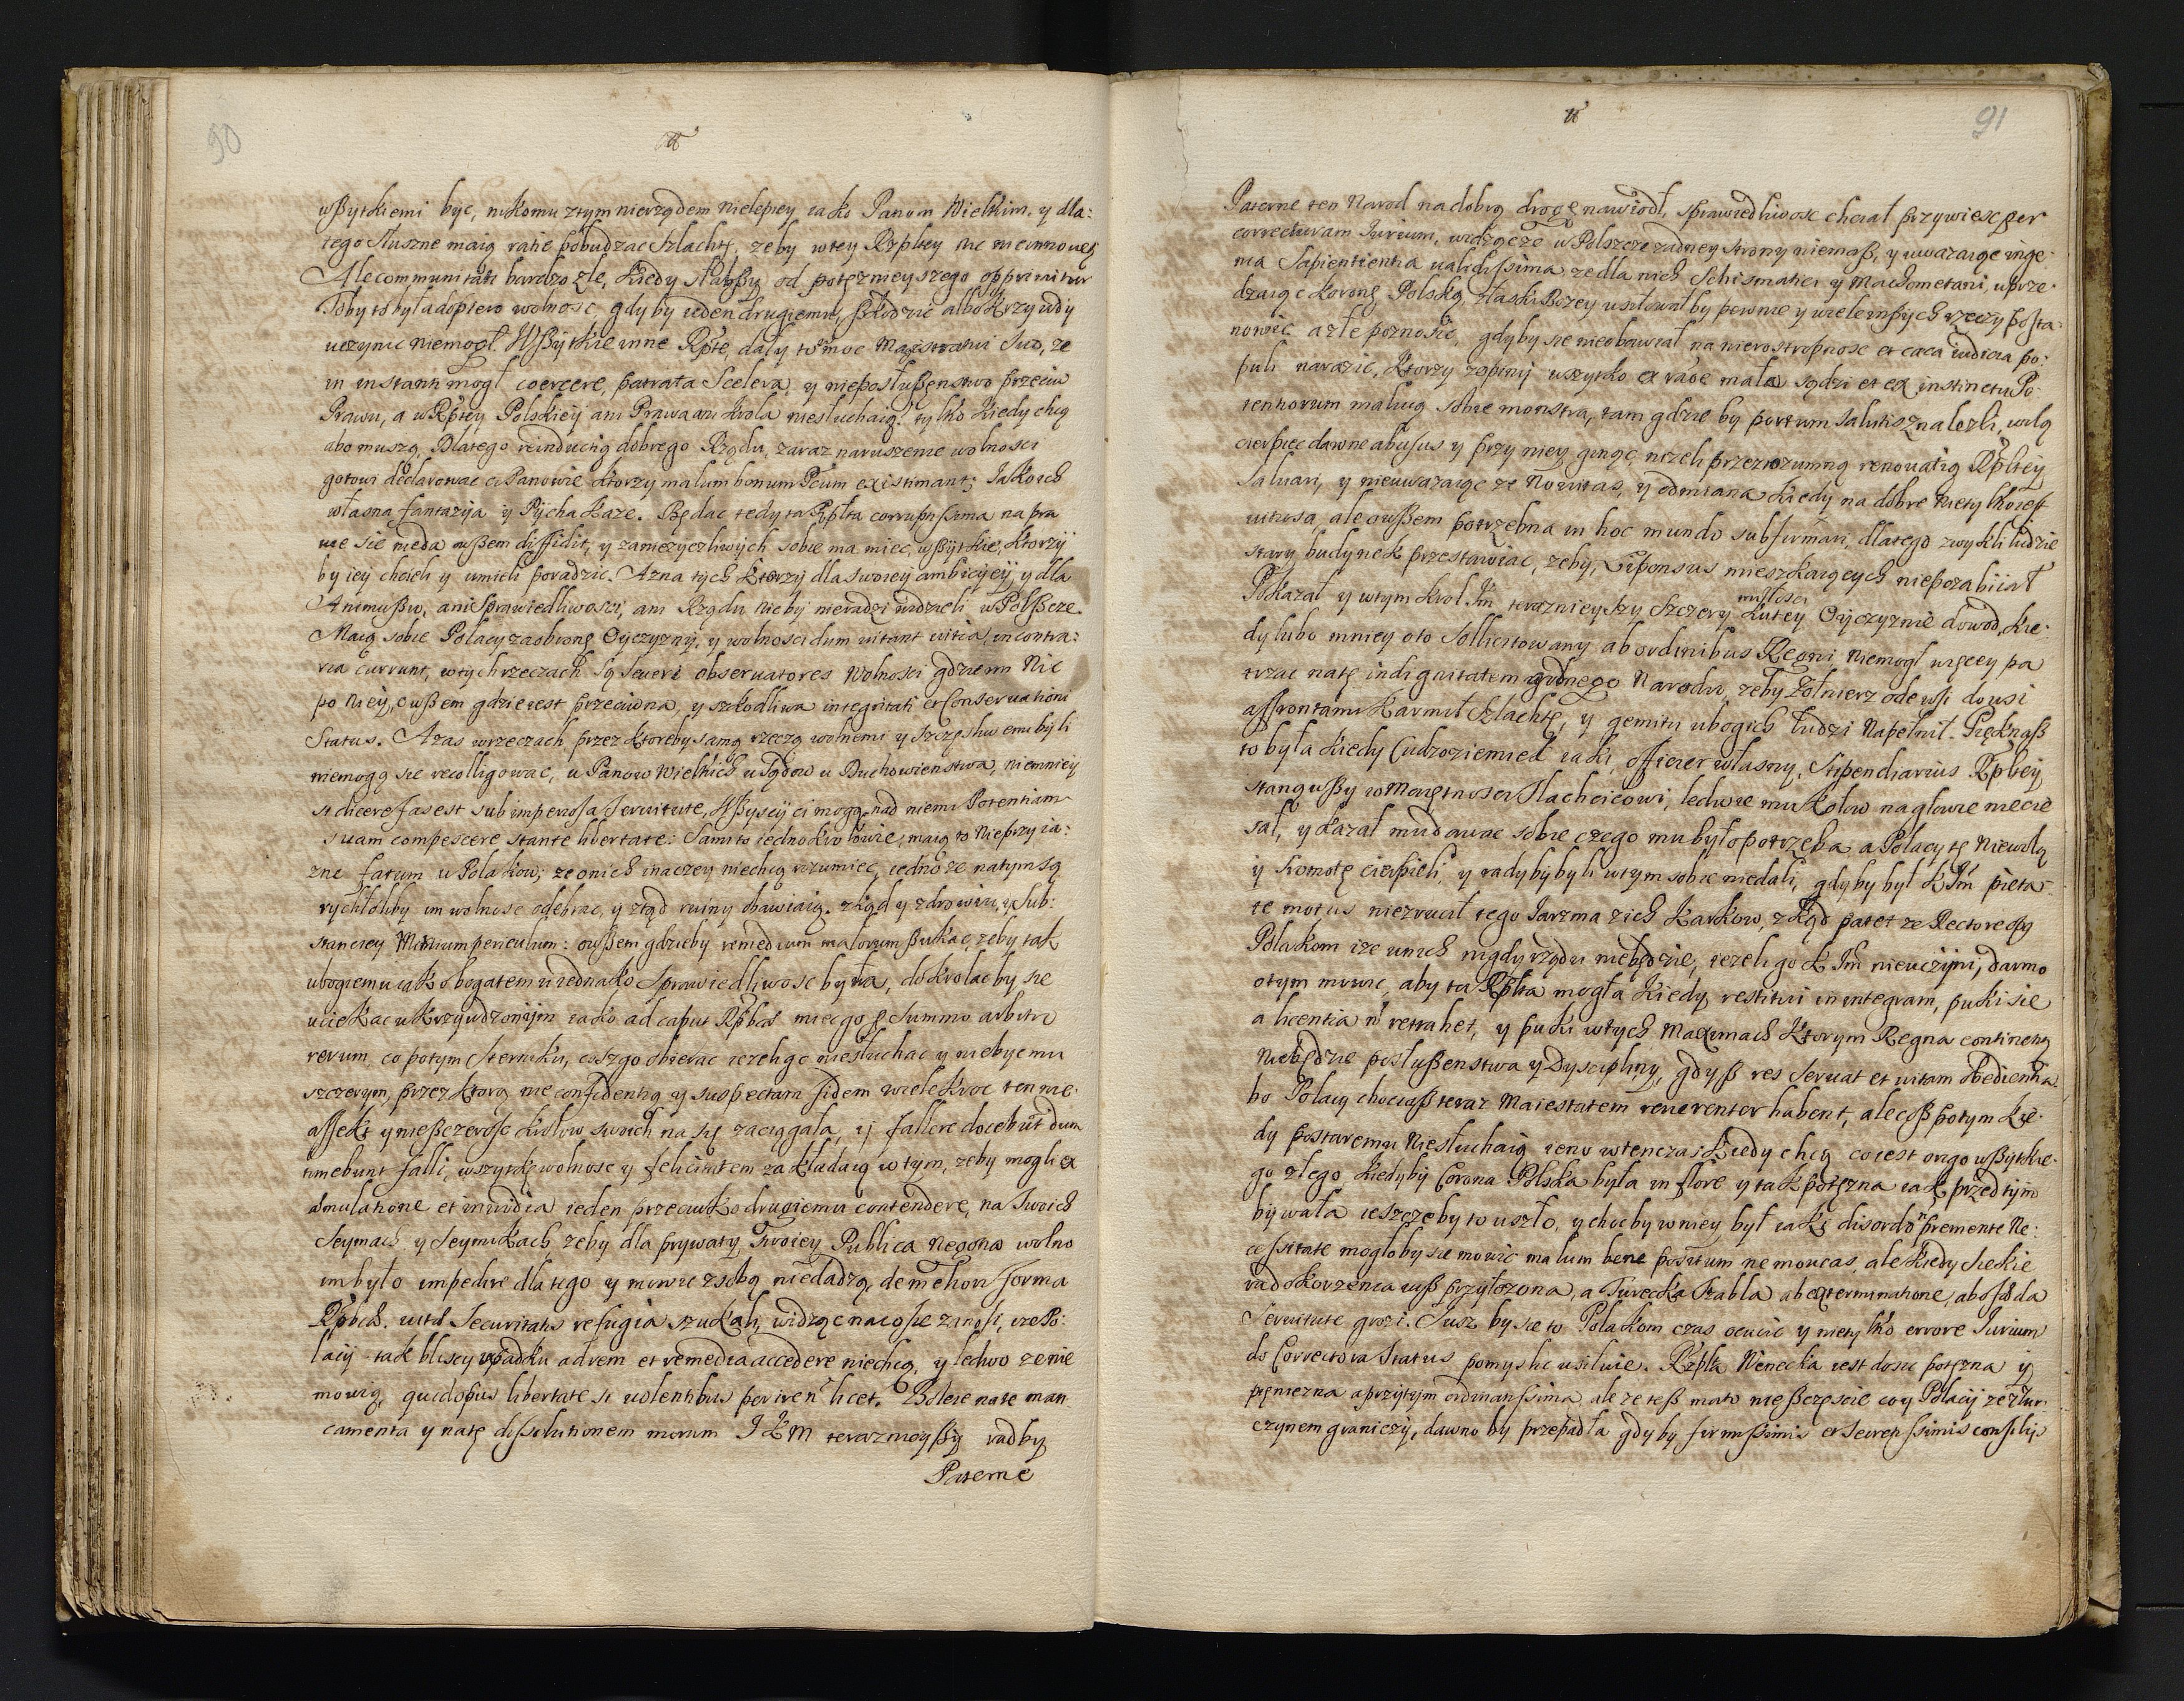 90
wßytkiemi być, nikomu ztym nierządem nielepiey iako Panom Wielkim, y dla:
tego słuszne maią raõe pobudzac Szlachtę, zeby wtey Rzpltey nic nie innoueę
Ale communitati bardzo zle, kiedy słabßy od potęznieyszego opprimitur
Toby to była dopiero wolnosc, gdyby ieden drugiemu, ßkodzic albo krzywdy
uczynic niemogł. Wßytkie inne Rpte, dały to moc Magistratui Suo, ze
in instanti mogł coercere, patrata Scelera, y nieposłußenstwo przeciw
Prawu, a w Rptey Polskiey ani Prawa ani krola niesłuchaią! tylko kiedy chcą
abo muszą. Dlatego reinductią dobrego Rządu, zaraz naruszenie wolnosci
gotowi declarowac ci Panowie ktorzy malum bonum Pcum existimant; Jako ich
własna fantazyia y Pycha kaze. Będac tedy ta Rplta corruptissima na pra
we sie nieda owßem diffidit, y zaniezyczliwych sobie ma miec, wßytkie, ktorzy
by iey chcieli y umieli poradzic. Azna tych ktorzy dla swoiey ambicyey, y dla
Animußu, ani Sprawiedliwosci, ani Rządu nieby nieradzi widzieli w Polßcze.
Maią sobie Polacy zaobronę Oyczyzny, y wolnosci dum vitant vitia, in contra:
ria currunt, wtych rzeczach są Severi obseruatores Wolnosci gdzie im Nic
po Niey, owßem gdzie iest przeciwna, y szkodliwa integritati et Conseruationi
Status. Azas wrzeczach przez ktoreby samą rzeczą wolnemi y Szczęsliwemi byli
niemogą sie recolligowac, u Panow Wielkich u Sądow u Duchowienstwa, niemniey
si dicere fas est sub imperiosa Seruitute, Wßyscy ci mogą nad niemi Potentiam
suam compescere, stante libertate: Sami to iedno krolowie, maią to Nieprzyia:
zne fatum u Polakow; ze onich inaczey niechcą rozumiec, iedno ze natym są
rychłoliby im wolnosc odebrac, y ztąd ruiny obawiaią. zkąd y zdrowiu, y Sub:
stanciey Minium periculum: owßem gdzieby remedium malorum ßukac, zeby tak
ubogiemu iako bogatemu iednako Sprawiedliwosc była, do krola aby sie
uciekac ukrzywdzonym iako ad caput Rpbcæ miec go p Summo arbitro
rerum, co potym sterniku, coz go obierac iezeli go niesłuchac y niebyc mu
szczerym, przez ktorą nie confidentią y suspectam fidem wielekroc ten nie
affekt y nießczerosc krolow swoich na się zaciągała, y fallere docebunt dum
timebunt falli, wszytkę wolnosc y felicitatem zakładaią w tym, zeby mogli ex
æmulatione et inuidia ieden przeciwko drugiemu contendere, na swoich
Seymach y Seymikach, zeby dla prywaty Swoiey Publica Negotia wolno
im było impedire dla tego y mowic zsobą niedadzą, de meliori forma
Rpbcæ. vitæ Securitatis refugia szukali, widząc naco sie zanosi, ize Po:
lacy tak bliscy upadku ad rem et remedia accedere niechcą, y ledwo ze nie
mowią, quid opus libertate si uolentibus perire n licet. Boleie na te man
camenta y natę dissolutionem morum J K M terazniayßy radby
Paterne
91
Paterne ten Narod na dobrą drogę nawiodł, sprawiedliwosc chciał przywiesc per
correcturam Jurium, widząc ze w Polszcze zadney strony niemaß, y uwazaiąc inge:
nia Sapientientia ualidissima, ze dla nich Schismatici y Machometani, uprze:
dzaiąc koronę Polską, złaski Bozey usiłowałby pewnie y wiele inßych rzeczy posta:
nowic, a złe poznosic, gdyby sie nieobawiał na nierostropnosc et cæca iudicia po:
puli narazic, ktorzy zopiniy wszytko ex raõe mala sądzi et ex instinctu Po:
tentiorum maluią sobie monstra, tam gdzie by portum salutis znalezli, wolą
cierpiec dawne abusus y przy niey ginąc, nizeli przez rozumną renouatią Rpltey
saluari, y nieuwazaiąc ze Nouitas, y odmiana kiedy na dobre nietylko iest
uitiosa, ale owßem potrzebna in hoc mundo sublunari, dlatego zwykli ludzie
stary budynek przestawiac, zeby, mieszkaiących niepozabiiał
Pokazał y wtym krol Jm terazniayszy Szczery miłosci kutey Oyczyznie dowod, kie:
dy lubo mniey oto Sollicitowany ab ordinibus Regni, Niemogł więcey pa
trzac natę indignitatem godnego Narodu, zeby Zołnierz odewsi do wsi
affrontami karmił Szlachtę, y gemitu ubogich ludzi Napełnił. Pięknaß
to była kiedy Cudzoziemiec iaki, officier własny, Stipendiarius Rpltey
stanąwßy wMaiętnosci Slachcicowi, ledwie mu kołow nagłowie niecie
sał, y kazał mu dawac sobie czego mu było potrzeba, a Polacy tę Niewolą
y sromotę cierpieli, y radyby byli wtym sobie niedali, gdyby był K Jm pieta:
te motus niezrucił tego Jarzma zich karkow, zkąd patet ze Rectore
Polakom ize unich nigdy rządu niebędzie, iezeli go K Jm nieuczyni, darmo
otym mowic, aby ta Rplta mogła kiedy restitui in integram, puki sie
a licentia n retrahet, y puki wtych Maximach ktorym Regna continentur
niebędzie posłußenstwa y Dyscipliny, gdyß res seruat et uitam obedientia.
bo Polacy chociaß teraz Maiestatem reuerenter habent, ale coß potym kie:
dy postaremu niesłuchaią ieno wtenczas kiedy chcą co iest origo wßytkie
go złego kiedyby Corona Polska była in flore y tak potęzna iak przedtym
bywała ieszczeby to uszło, y chocby w niey był iaki disordo premente Ne:
cessitate mogłoby sie mowic malum bene positum ne moueas, ale kiedy Siekie
ra do korzenia iuß przyłozona, a Turecka Szabla ab exterminatione, abo fæda
Seruitute grozi. Jusz by sie to Polakom czas ocucic y nietylko errore Jurium
do Correctora Status pomyslic usilnie. Rzplta Wenecka iest dosc potęzna y
pięniezna a przytym ordinatissima, ale ze teß mato nießczęscie co y Polacy ze z Tur
czynem graniczy, dawno by przepadła gdyby firmissimis et secretissimis consiliis